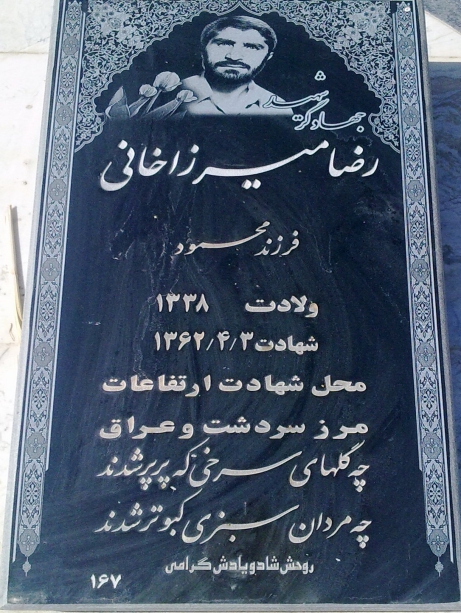 جهادگر شهید
رضا میرزاخانی
فرزند محمود
ولادت ۱۳۳۸
شهادت ۱۳۶۲/۴/۳
محل شهادت ارتفاعات
مرز سردشت و عراق
چه گلهای سرخی که پرپر شدند
چه مردان سبزی کبوتر شدند
روحش شاد و یادش گرامی
۱۶۷